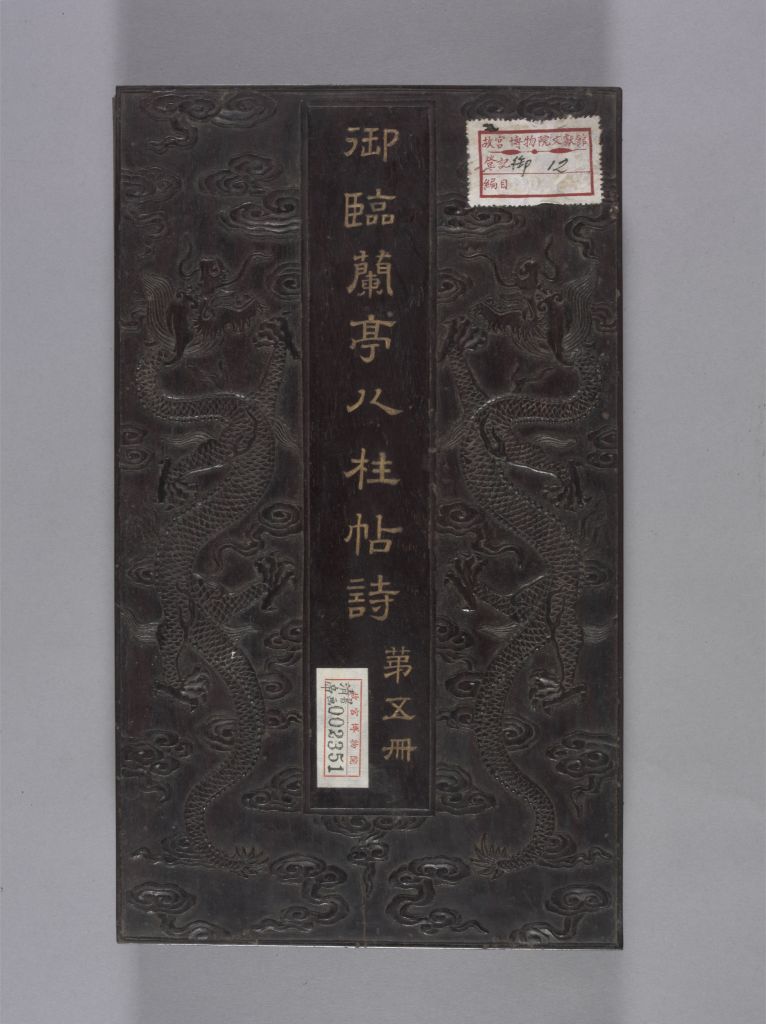 御臨蘭亭八柱帖詩
第五冊
故宮博物院文獻館
登記 御 12
編目
故宮博物院
002351